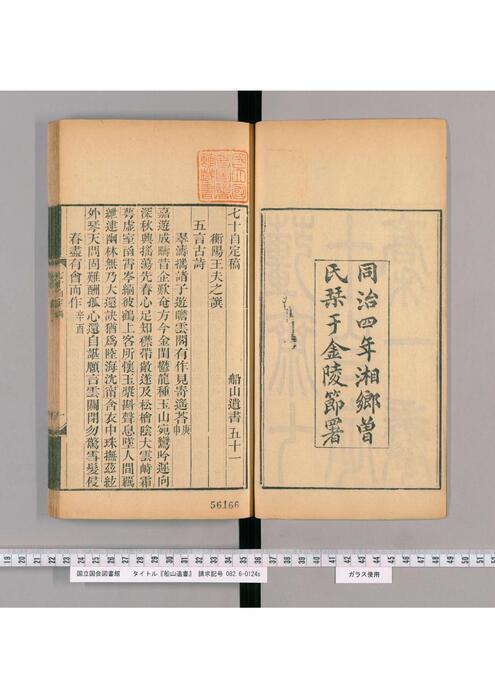 同治四年湘鄉曾
氏栞于金陵節署
七十自定稿 船山遺書五十一
衡陽王夫之譔
五言古詩
翠濤攜諸子遊瞻雲閣有作見寄遙荅庚申
嘉遊成疇昔金歎奄方今金閨鬱龍種玉山宛鸞吟遲向
深秋興搖蕩先春心足知襟帶敞蓮及松檜陰大雲崎霜
崿虛室函宵岑緬彼鶴上客所懷玉漿斟聲息墜人間羈
紲逮幽林無乃大還訣猶為陸海沈甯含衣中珠撫茲絃
外琴天問固難酬孤心還自諶願言雲關閉勿驚雪髮侵
春盡有會而作辛酉
56166
国立国会図書館 タイトル『船山遺書』 請求記号 082.6-0124s
ガラス使用